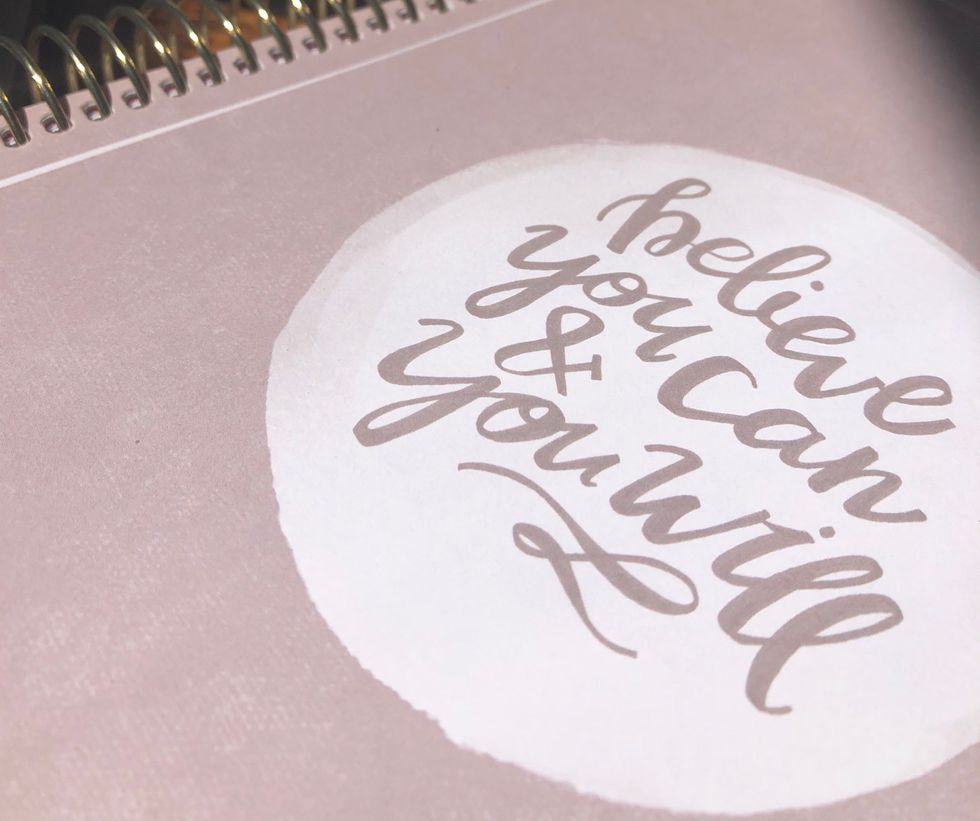 believe
you can
&
you will